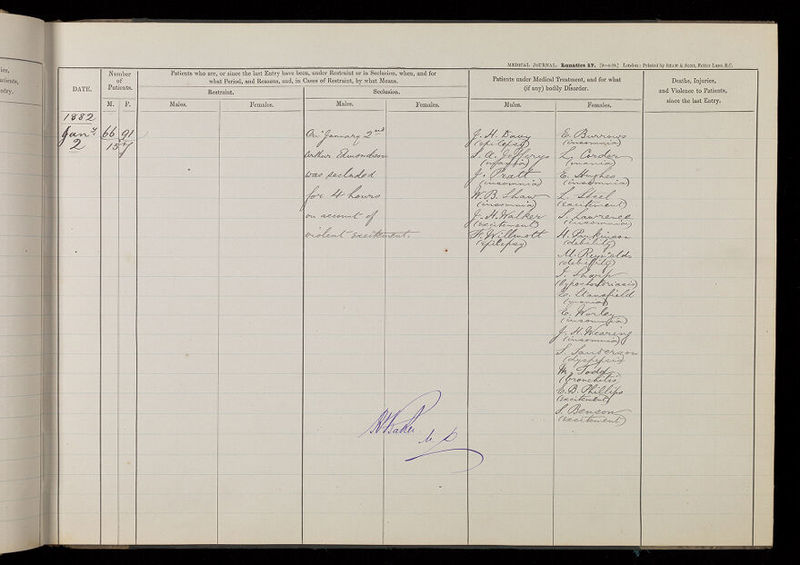 MEDICAL JOURNAL. Lunatics 17. London: Printed by SHAW & SONS, Fetter Lane, E.C.
DATE.
Number of Patients.
M. F.
Patients who are, or since the last Entry have been, under Restraint or in Seclusion, when, and for
what Period, and Reasons, and, in Cases of Restraint, by what Means.
Restraint.
Seclusion.
Males. Females. Males. Females.
Patients under Medical Treatment, and for what
(if any) bodily Disorder.
Males. Females.
Deaths, Injuries,
and Violence to Patients,
since the last Entry.
1882
Jany 2
66 91
157
On January 2nd
Arthur Edmondson
was secluded
for 4 hours
on account of
violent excitement.
J. H. Davy
(epilepsy)
S. A. Jefferys
(mania)
J. Pratt
(insomnia)
W. B. Shaw
(insomnia)
J. H. Walker
(excitement)
F. Willmott
(epilepsy)
E. Burrows
(insomnia)
L. Corder
(mania)
E. Hughes
(insomnia)
L. Steel
(excitement)
S. Lawrence
(insomnia)
H. Parkinson
(debility)
M. Reynolds
(debility)
J. Sharp
E. Stansfield
(mania)
E. Worley
(insomnia)
J. H. Wearing
(insomnia)
S. Sanderson
M. Todd
(bronchitis)
E. B. Phillips
(excitement)
S. Benson
(excitement)
Baker M D
ies,
atients,
ntry.